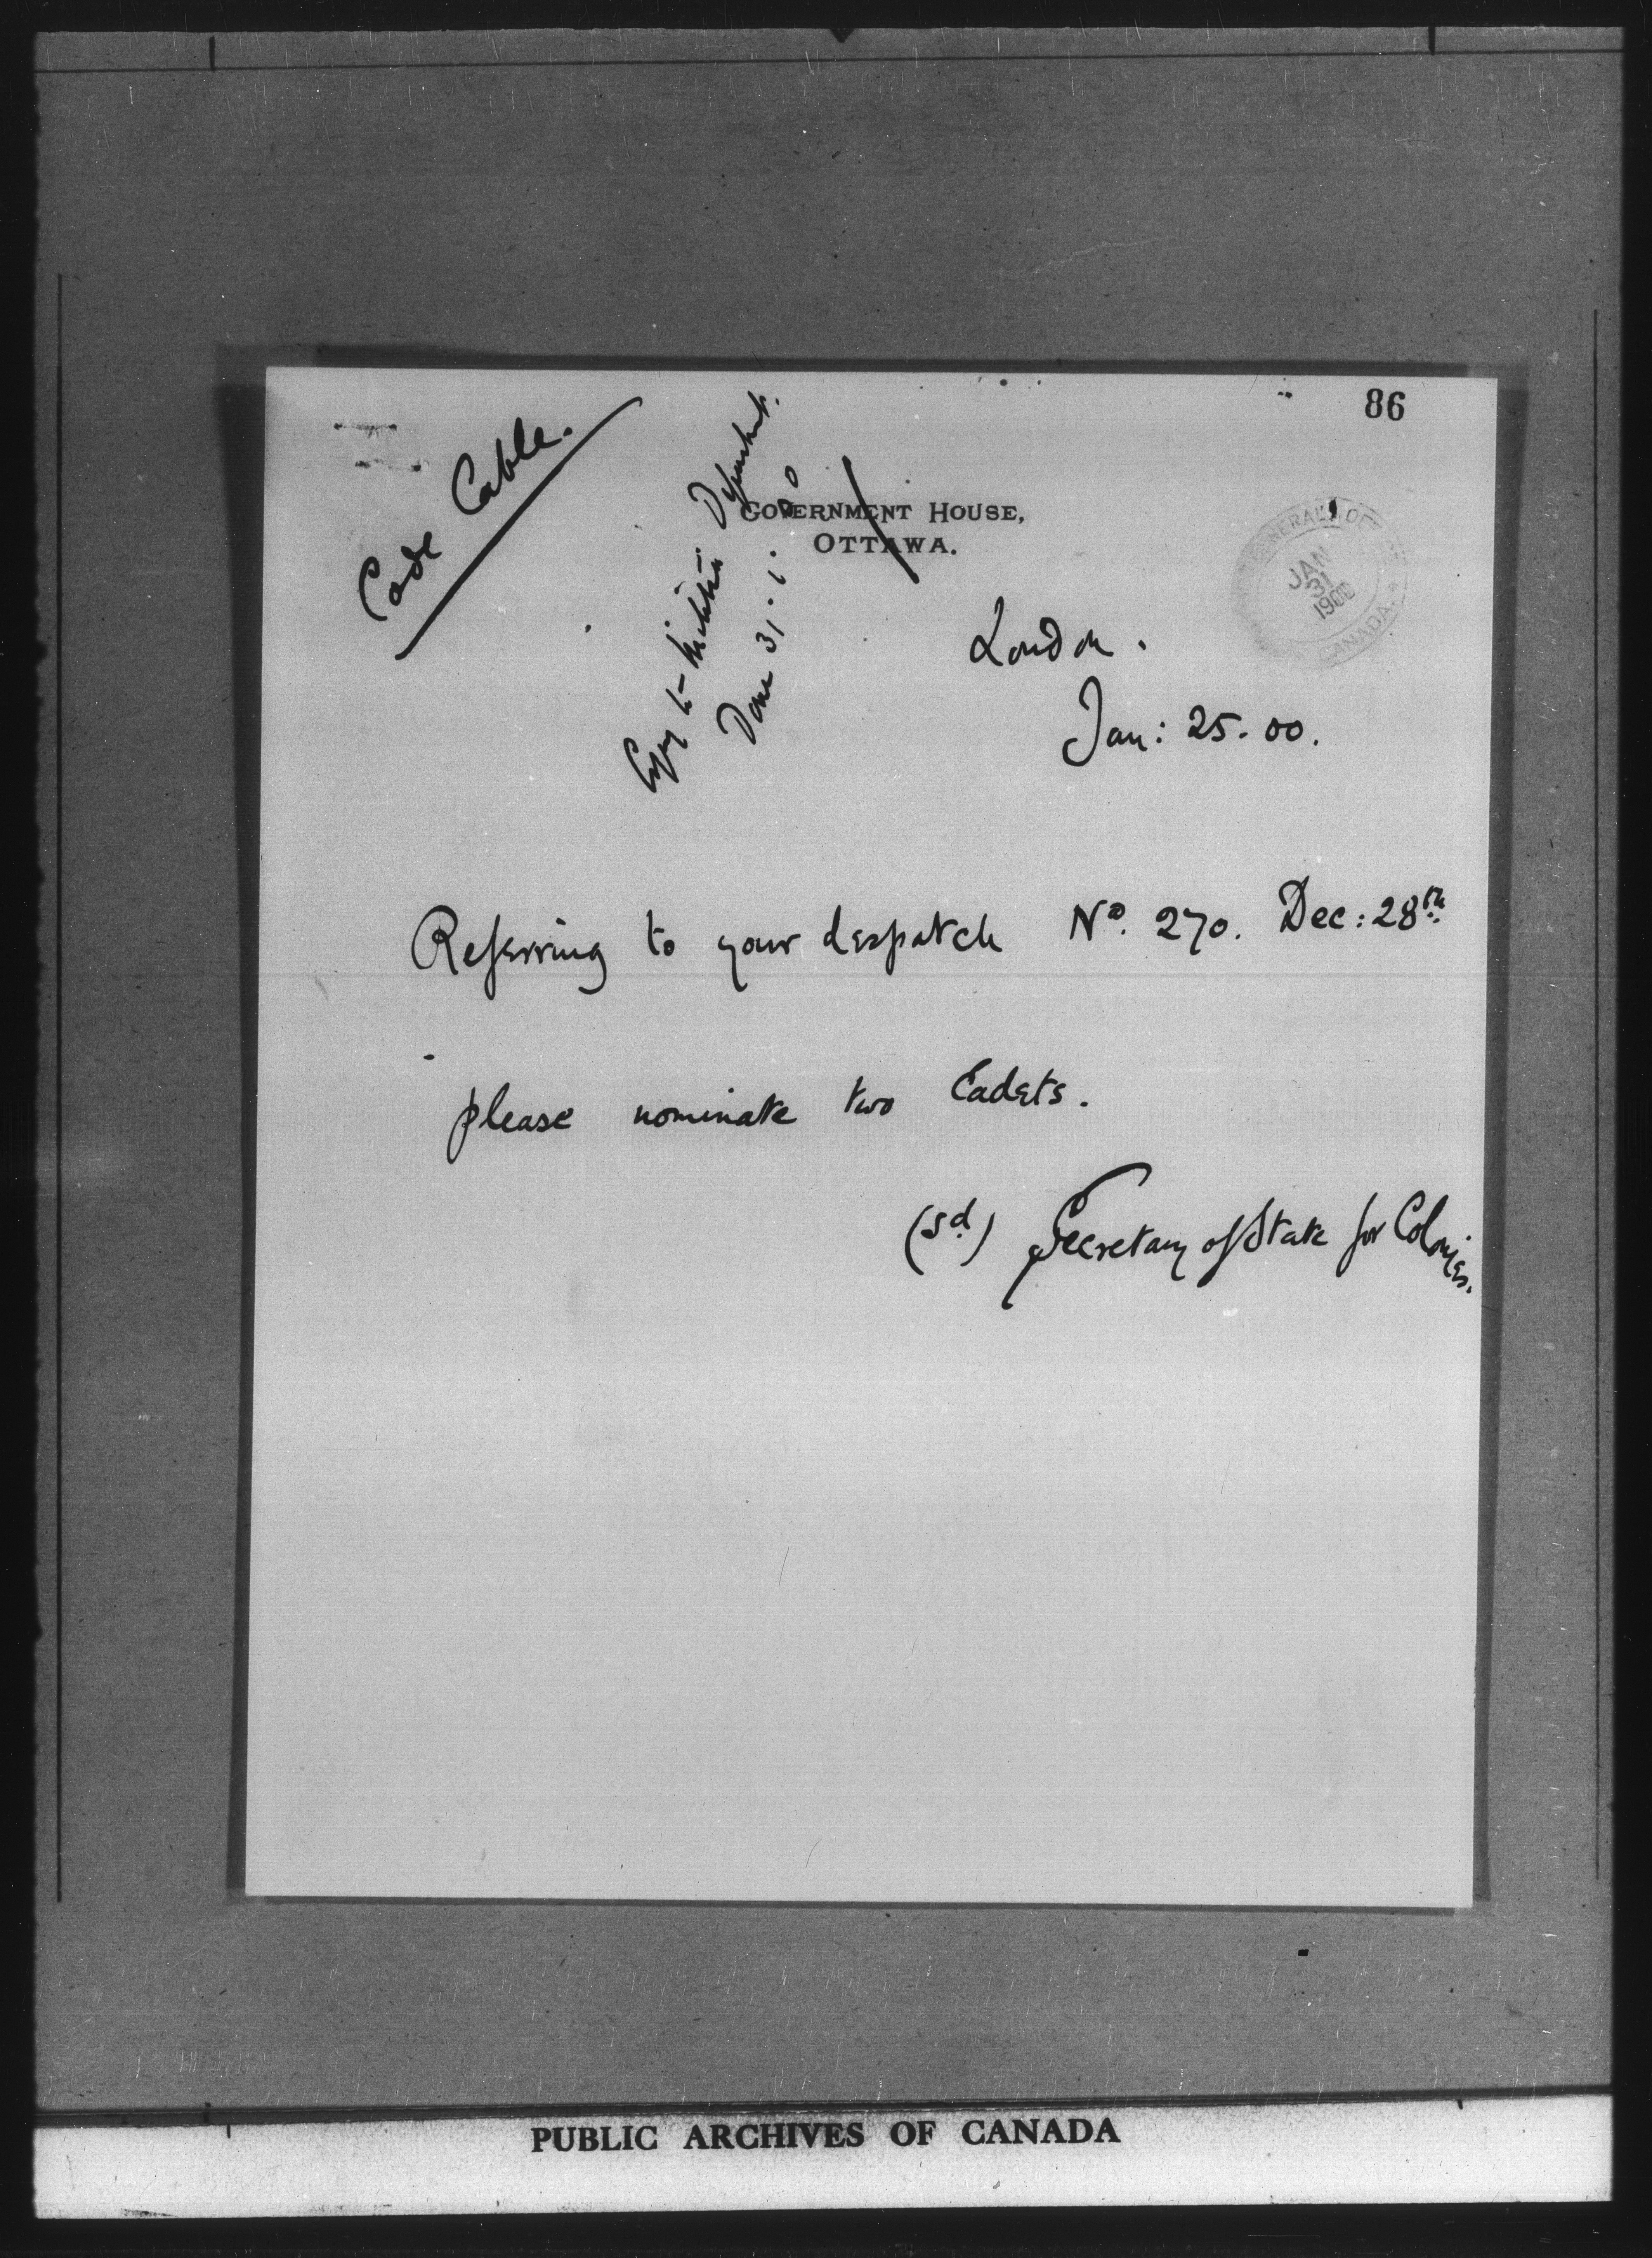 86
Code Cable.
Copy to Militia Department.
Done 31.1.00
GOVERNMENT HOUSE,
OTTAWA.
JAN
31
1900
CANADA.
London.
Jan: 25. 00.
Referring to your despatch Nº. 270. Dec: 28th
please nominate two Cadets.
(sd) Secretary of State for Colonies.
PUBLIC ARCHIVES OF CANADA